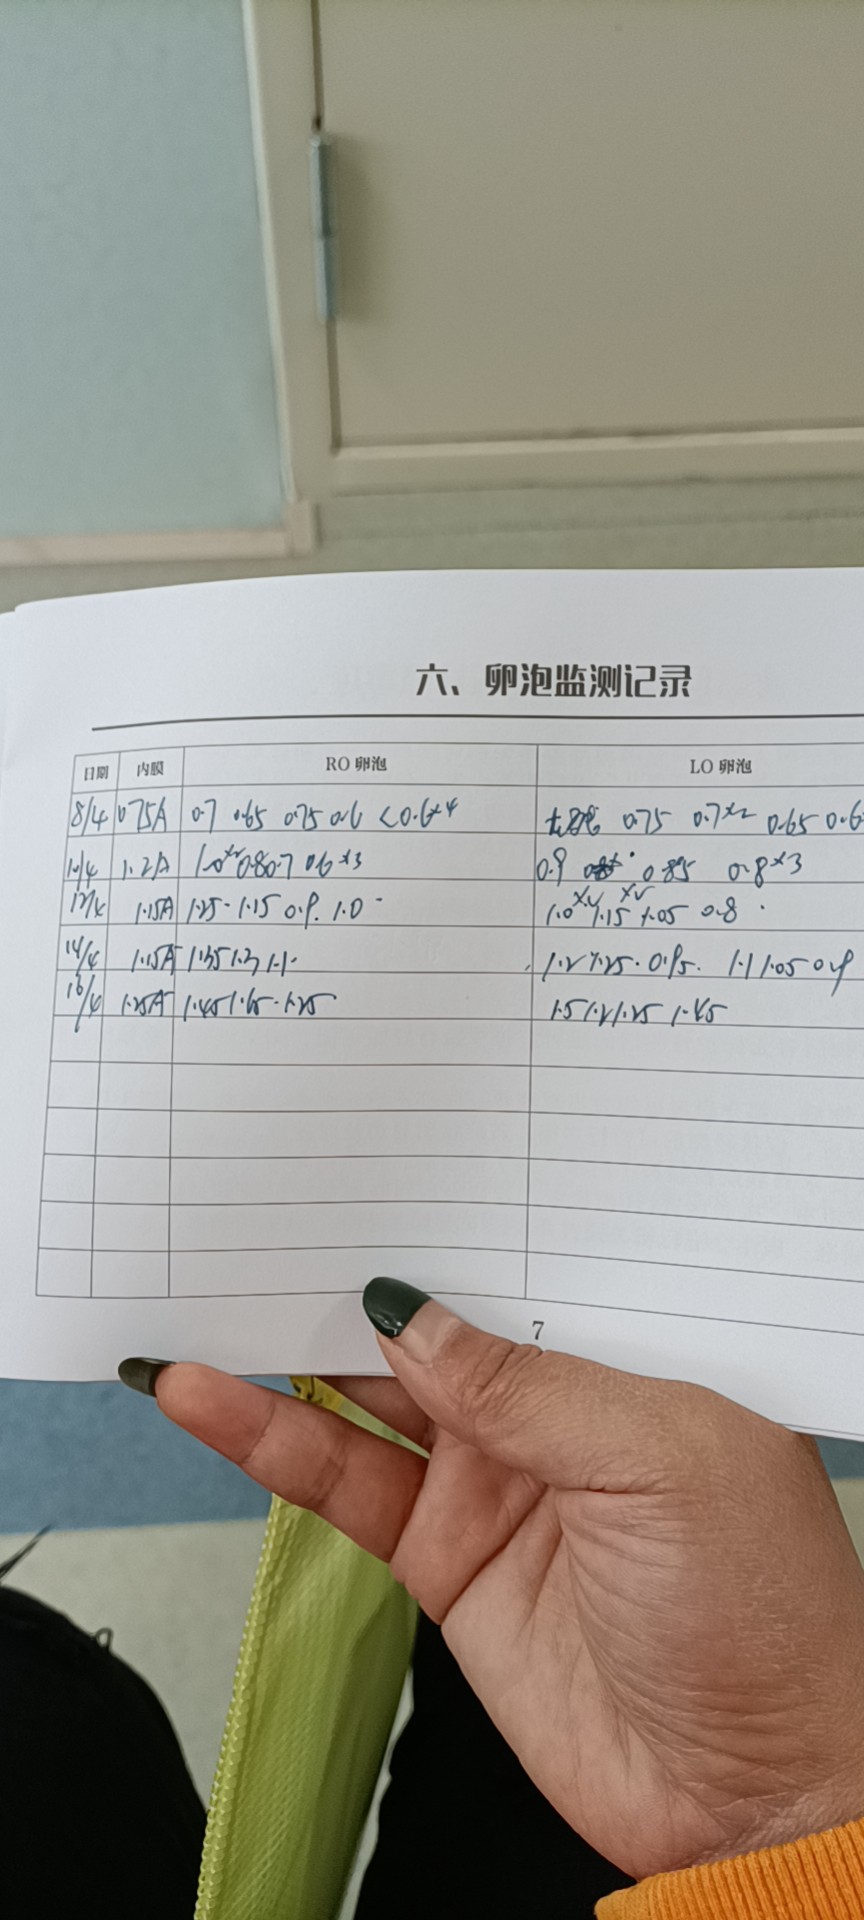 六、卵泡监测记录
日期 内膜 RO 卵泡 LO 卵泡
8/4 0.75A 0.7 0.65 0.75 0.6 <0.6×4 0.75 0.7×2 0.65 0.6
10/4 1.2A 1.0×2 0.8 0.7 0.6×3 0.9 0.85 0.8×3
12/4 1.15A 1.25 1.15 0.9 1.0 1.0×2 1.15×2 1.05 0.8
14/4 1.15A 1.35 1.3 1.1 1.2 1.25 0.95 1.1 1.05 0.9
16/4 1.25A 1.45 1.65 1.25 1.5 1.2 1.25 1.45
7